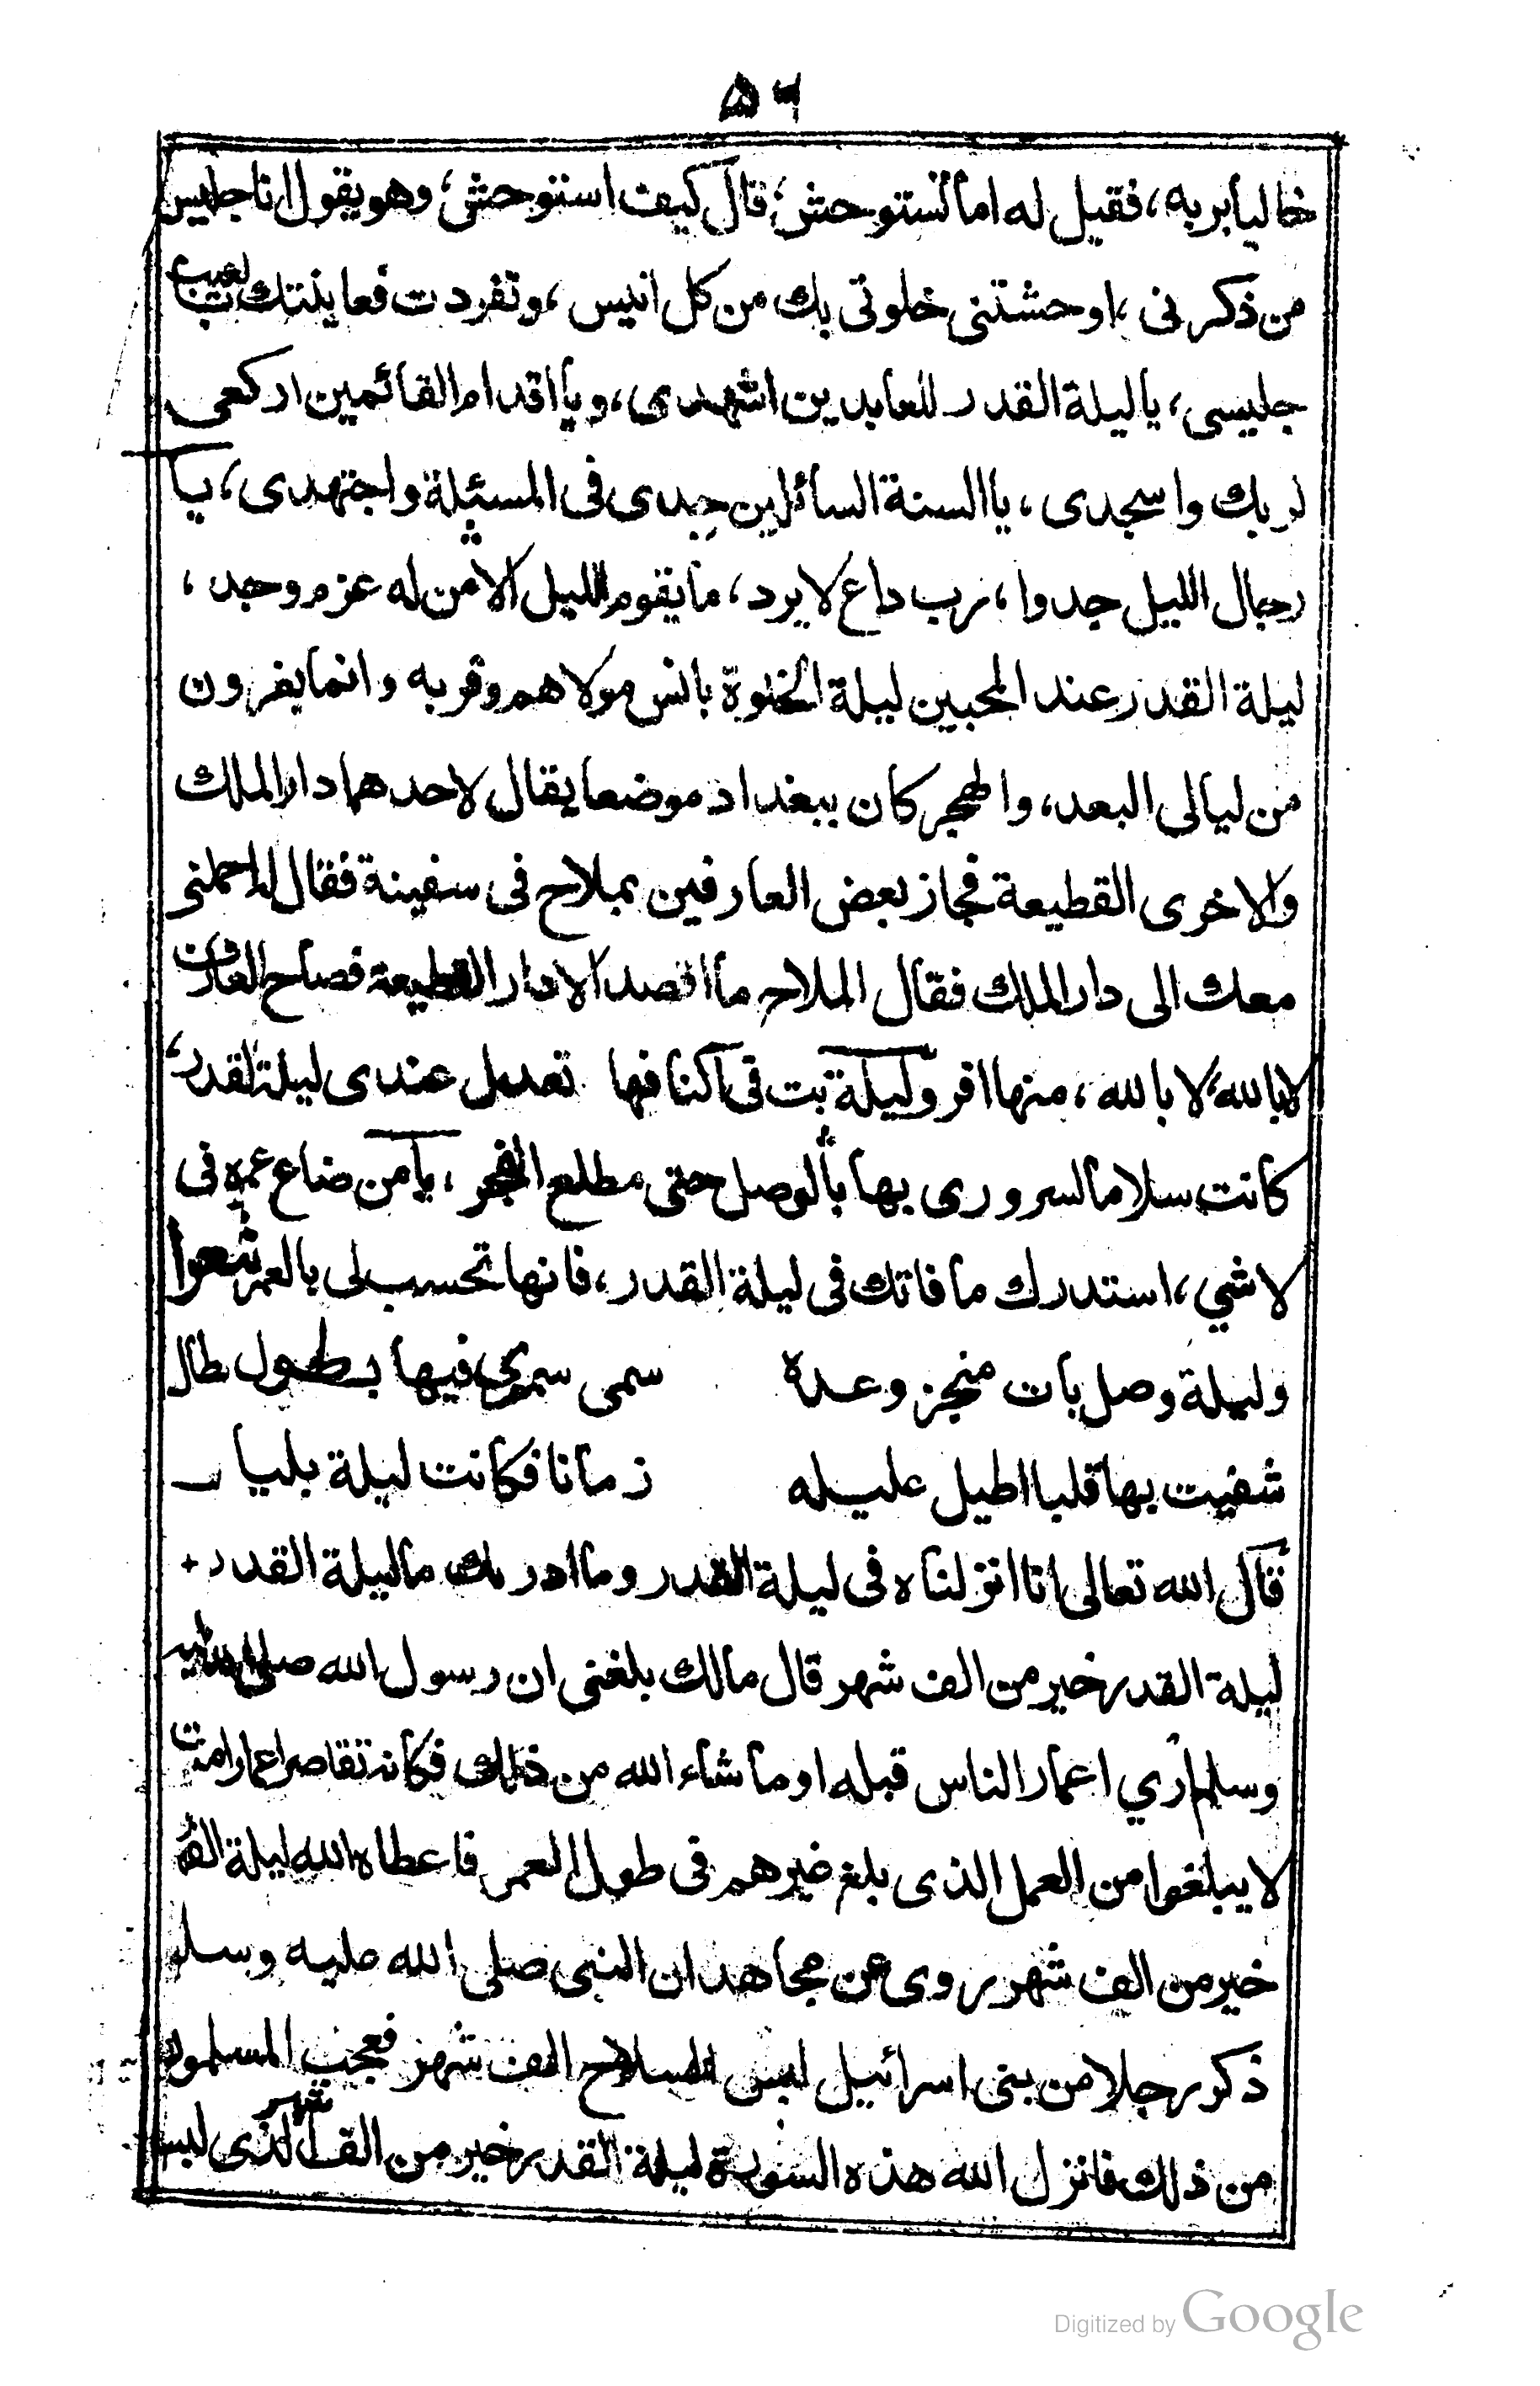 ٥٦
خاليا بربه، فقيل له اما تستوحش؛ قال كيف استوحش؛ وهو يقول انا جليس
من ذكرنى ،اوحشتنى خلوتى بك من كل انيس ،وتفردت فعاينتك بالغيب
جليسى، يا ليلة القدر للعابدين اشهدى، ويا اقدام القائمين اركعى
لربك واسجدى ، يا السنة السائلين جدى فى المسئلة واجتهدى، يا
رجال الليل جدوا ، رب داع لا يرد، ما يقوم الليل الا من له عزم وجد ،
ليلة القدر عند المحبين ليلة الخلوة بانس مولاهم وقربه وانما يفرون
من ليالى البعد، والهجر كان ببغداد موضعا يقال لاحدهما دار الملك
والاخرى القطيعة فجاز بعض العارفين بملاح فى سفينة فقال له احملنى
معك الى دار الملك فقال الملاح ما اقصد الا دار القطيعة فصاح العارف
لا بالله، لا بالله ، منها افر وليلة بت فى اكنافها تعدل عندى ليلة القدر،
كانت سلاما لسرورى بها بالوصل حتى مطلع الفجر ، يا من ضاع عمره فى
لا شي ، استدرك ما فاتك فى ليلة القدر، فانها تحسب لى بالعمر شعرا
وليلة وصل بات منجز وعده سمى سميرى فيها بطول طال
شفيت بها قلبا اطيل عليله زمانا فكانت ليلة بليال
قال الله تعالى انا انزلناه فى ليلة القدر وما ادرىك ما ليلة القدر
ليلة القدر خير من الف شهر قال مالك بلغنى ان رسول الله صلى الله عليه
وسلم اري اعمار الناس قبله او ما شاء الله من ذلك فكانه تقاصر اعمار امته
لا يبلغوا من العمل الذى بلغ غيرهم فى طول العمر فاعطاه الله ليلة القدر
خير من الف شهر روى عن مجاهد ان النبى صلى الله عليه وسلم
ذكر رجلا من بنى اسرائيل لبس السلاح الف شهر فعجب المسلمون
من ذلك فانزل الله هذه السورة ليلة القدر خير من الف شهر الذى لبس
Digitized by Google